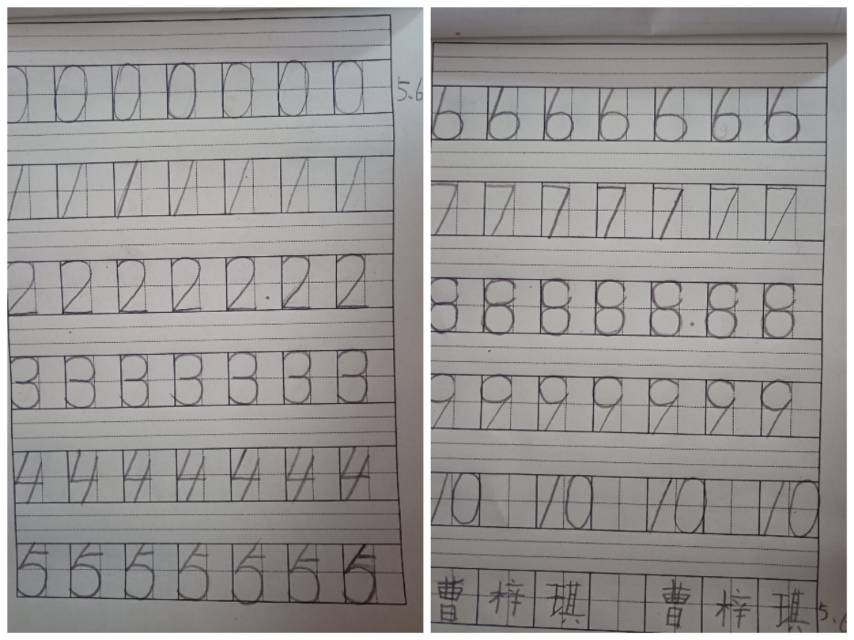 0 0 0 0 0 0 0 5.6
1 1 1 1 1 1 1
2 2 2 2 2 2 2
3 3 3 3 3 3 3
4 4 4 4 4 4 4
5 5 5 5 5 5 5
6 6 6 6 6 6 6
7 7 7 7 7 7 7
8 8 8 8 8 8 8
9 9 9 9 9 9 9
10 10 10 10
曹梓琪 曹梓琪 5.6